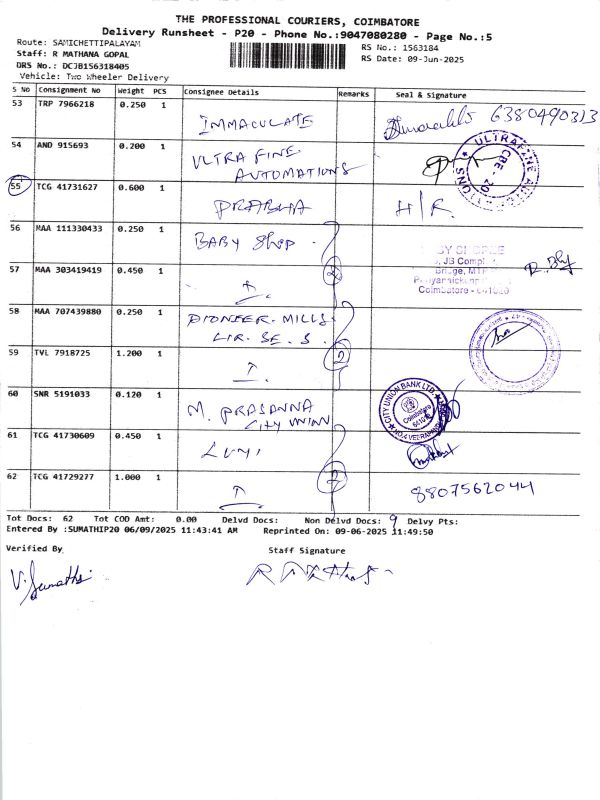 THE PROFESSIONAL COURIERS, COIMBATORE
Delivery Runsheet - P20 - Phone No.:9047080280 - Page No.:5
Route: SAMICHETTIPALAYAM
Staff: R MATHANA GOPAL
DRS No.: DCJB156318405
Vehicle: Two Wheeler Delivery
RS No.: 1563184
RS Date: 09-Jun-2025
S No Consignment No Weight PCS Consignee Details Remarks Seal & Signature
53 TRP 7966218 0.250 1 IMMACULATE 6380490313
54 AND 915693 0.200 1 ULTRA FINE AUTOMATIONS
55 TCG 41731627 0.600 1 PRABHA H/R
56 MAA 111330433 0.250 1 BABY Shop
57 MAA 303419419 0.450 1 2
Coimbatore - 641020
58 MAA 707439880 0.250 1 PIONEER MILLS
59 TVL 7918725 1.200 1 2
60 SNR 5191033 0.120 1 M. PRASANNA
CITY UNION
CITY UNION BANK LTD.
Coimbatore
61 TCG 41730609 0.450 1
62 TCG 41729277 1.000 1 2 8807562044
Tot Docs: 62 Tot COD Amt: 0.00 Delvd Docs: Non Delvd Docs: 9 Delvy Pts:
Entered By :SUMATHIP20 06/09/2025 11:43:41 AM Reprinted On: 09-06-2025 11:49:50
Verified By
Staff Signature
V. Sumathi